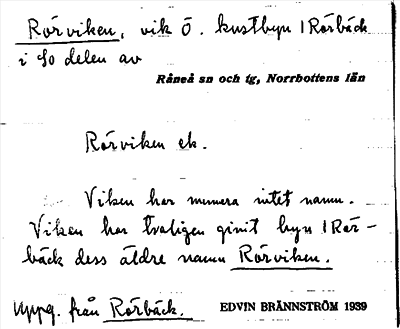 Rörviken, vik Ö. kustbyn 1 Rörbäck
i So delen av
Råneå sn och tg, Norrbottens län
Rörviken ek.
Viken har numera intet namn.
Viken har troligen givit byn 1 Rör-
bäck dess äldre namn Rörviken.
Uppg. från Rörbäck. EDVIN BRÄNNSTRÖM 1939